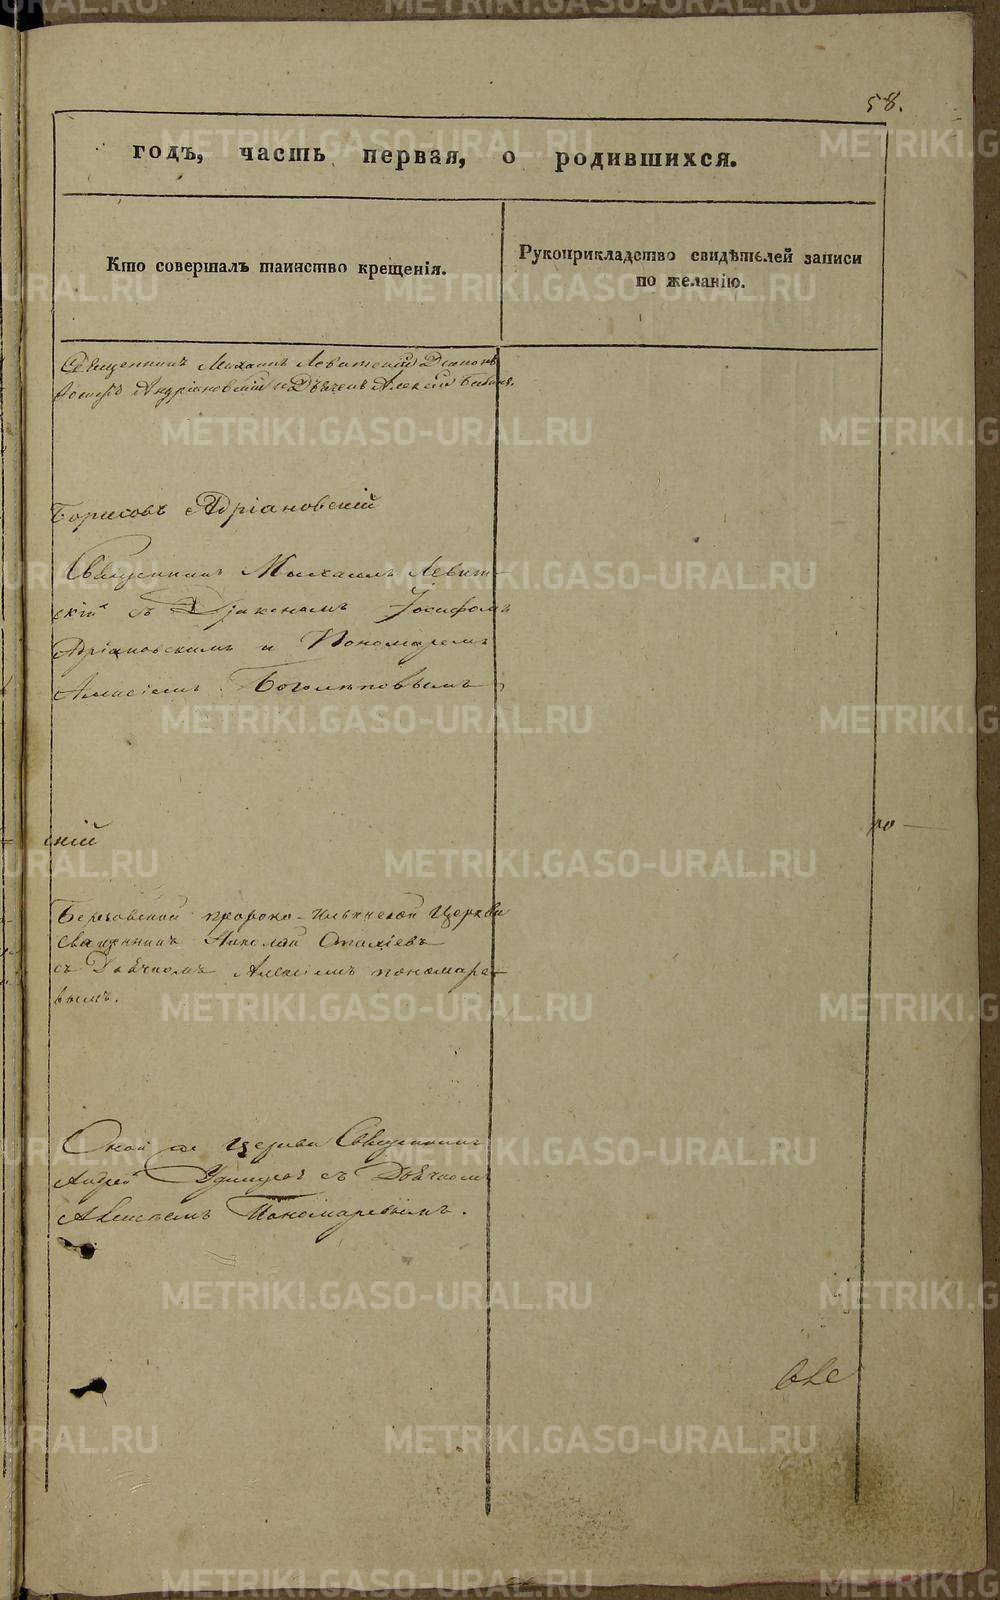 58.
годъ, часть первая, о родившихся.
Кто совершалъ таинство крещенія.
Рукоприкладство свидѣтелей записи
по желанію.
Священникъ Михаилъ Левитскій Діаконъ
Андріановскій и Дьячекъ Алексѣй
Борисовъ Адріановскій
Священникъ Михаилъ Левит-
скій съ Діакономъ Іосифомъ
Адріановскимъ и Пономаремъ
Алексіемъ
скій
Березовской пророко-Ильинской Церкви
Священникъ Николай
съ Дьячкомъ Алексіемъ пономаре-
вымъ.
Оной же Церкви Священникъ
Андрей съ Дьячкомъ
Алексѣемъ Пономаревымъ.
METRIKI.GASO-URAL.RU